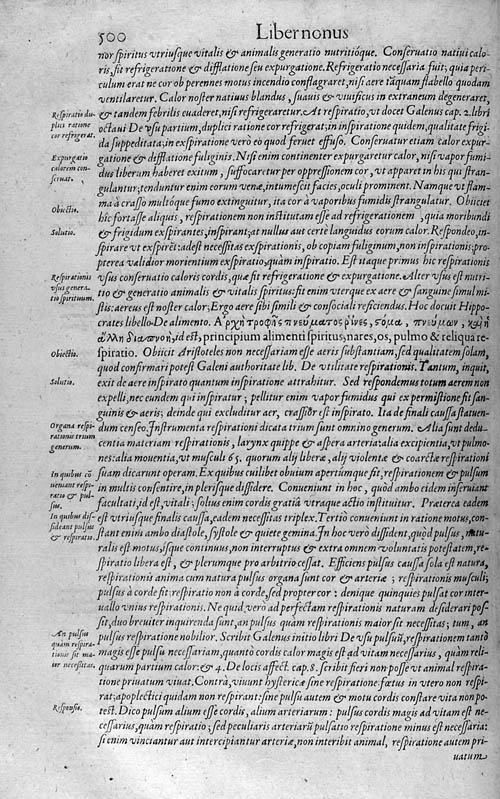 500 Liber nonus
nor spiritus vtriusque vitalis & animalis generatio nutritióque. Conseruatio natiui calo-
ris, fit refrigeratione & difflatione seu expurgatione. Refrigeratio necessaria fuit; quia peri-
culum erat ne cor ob perennes motus incendio conflagraret, nisi aere tãquam flabello quodam
ventilaretur. Calor noster natiuus blandus, suauis & viuificus in extraneum degeneraret,
Respiratio du-
plici ratione
cor refrigerat.
& tandem febrilis euaderet, nisi refrigeraretur. At respiratio, vt docet Galenus cap. 2. libri
octaui De vsu partium, duplici ratione cor refrigerat; in inspiratione quidem, qualitate frigi-
da suppeditata; in exspiratione verò eo quod feruet effuso. Conseruatur etiam calor expur-
Expurgatio
calorem con-
seruat.
gatione & difflatione fuliginis. Nisi enim continenter expurgaretur calor, nisi vapor fumi-
dus liberum haberet exitum, suffocaretur per oppressionem cor, vt apparet in his qui stran-
gulantur; tenduntur enim eorum venæ, intumescit facies, oculi prominent. Namque vt flam-
ma à crasso multóque fumo extinguitur, ita cor à vaporibus fumidis strangulatur. Obiiciet
Obiectio.
hîc fortasse aliquis, respirationem non institutam esse ad refrigerationem, quia moribundi
Solutio.
& frigidum exspirantes, inspirant; at nullus aut certè languidus eorum calor. Respondeo, in-
spirare vt exspirẽt: adest necessitas exspirationis, ob copiam fuliginum, non inspirationis; pro-
pterea validior morientium exspiratio quàm inspiratio. Est itaque primus hic respirationis
Respirationis
vsus genera-
tio spirituum.
vsus conseruatio caloris cordis, quæ fit refrigeratione & expurgatione. Alter vsus est nutri-
tio & generatio animalis & vitalis spiritus: fit enim vterque ex aere & sanguine simul mi-
stis: aereus est noster calor; Ergo aere sibi simili & consociali reficiendus. Hoc docuit Hippo-
crates libello De alimento. Ἀρχὴ τροφῆς πνεύματος ῥῖνες, στόμα, πνεύμων, καὶ ἡ
ἄλλη διαπνοή, id est, principium alimenti spiritus, nares, os, pulmo & reliqua re-
Obiectio.
spiratio. Obiicit Aristoteles non necessariam esse aeris substantiam, sed qualitatem solam,
quod confirmari potest Galeni authoritate lib. De vtilitate respirationis. Tantum, inquit,
Solutio.
exit de aere inspirato quantum inspiratione attrahitur. Sed respondemus totum aerem non
expelli, nec eundem qui inspiratur; pellitur enim vapor fumidus qui ex permistione fit san-
guinis & aeris; deinde qui excluditur aer, crassior est inspirato. Ita de finali caussa statuen-
Organa respi-
rationis trium
generum.
dum censeo. Instrumenta respirationi dicata trium sunt omnino generum. Alia sunt dedu-
centia materiam respirationis, larynx quippe & aspera arteria: alia excipientia, vt pulmo-
nes: alia mouentia, vt musculi 65. quorum alij liberæ, alij violentæ & coarctæ respirationi
In quibus cõ-
ueniant respi-
ratio & pul-
sus.
suam dicarunt operam. Ex quibus cuilibet obuium apertúmque fit, respirationem & pulsum
in multis consentire, in plerisque dissidere. Conueniunt in hoc, quòd ambo eidem inseruiant
facultati, id est, vitali; solius enim cordis gratiâ vtraque actio instituitur. Præterea eadem
In quibus dis-
sideant pulsus
& respiratio.
est vtriusque finalis caussa, eadem necessitas triplex. Tertiò conueniunt in ratione motus, con-
stant enim ambo diastole, systole & quiete gemina. In hoc verò dissident, quòd pulsus, natu-
ralis est motus, isque continuus, non interruptus & extra omnem voluntatis potestatem, re-
spiratio libera est, & plerumque pro arbitrio cessat. Efficiens pulsus caussa sola est natura,
respirationis anima cum natura pulsus organa sunt cor & arteriæ; respirationis musculi;
pulsus à corde fit; respiratio non à corde, sed propter cor: denique quinquies pulsat cor inter-
uallo vnius respirationis. Ne quid verò ad perfectam respirationis naturam desiderari pos-
An pulsus
quàm respira-
tionis sit ma-
ior necessitas.
sit, duo breuiter inquirenda sunt, an pulsus quàm respirationis maior sit necessitas; tum, an
pulsus respiratione nobilior. Scribit Galenus initio libri De vsu pulsuũ, respirationem tantò
magis esse pulsu necessariam, quantò cordis calor magis est ad vitam necessarius, quàm reli-
quarum partium calor: & 4. De locis affect. cap. 8. scribit fieri non posse vt animal respira-
tione priuatum viuat. Contrà, viuunt hystericæ sine respiratione. fœtus in vtero non respi-
rat; apoplectici quidam non respirant: sine pulsu autem & motu cordis constare vita non po-
Responsio.
test. Dico pulsum alium esse cordis, alium arteriarum: pulsus cordis magis ad vitam est ne-
cessarius, quàm respiratio; sed peculiaris arteriarũ pulsatio respiratione minus est necessaria:
si enim vinciantur aut intercipiantur arteriæ, non interibit animal, respiratione autem pri-
uatum